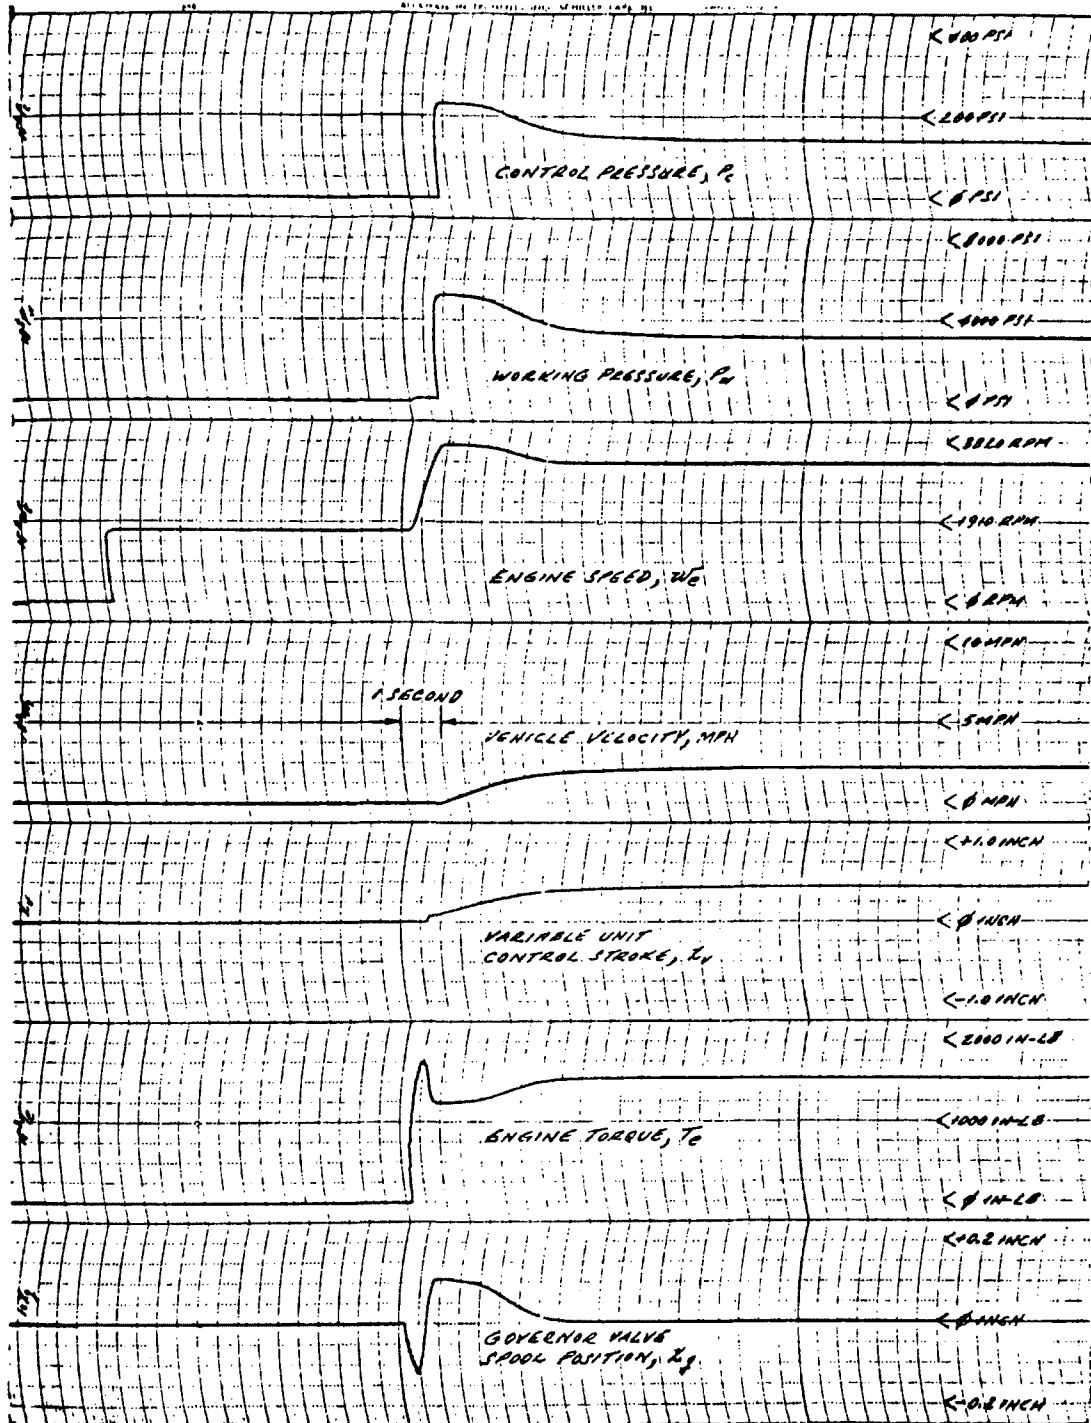 <400 PSI
<200 PSI
CONTROL PRESSURE, Pc
<φ PSI
<8000 PSI
<4000 PSI
WORKING PRESSURE, Pw
<φ PSI
<3820 RPM
<1910 RPM
ENGINE SPEED, We
<φ RPM
<10 MPH
1 SECOND
<5 MPH
VEHICLE VELOCITY, MPH
<φ MPH
<+1.0 INCH
<φ INCH
VARIABLE UNIT
CONTROL STROKE, Xv
<-1.0 INCH
<2000 IN-LB
<1000 IN-LB
ENGINE TORQUE, Te
<φ IN-LB
<+0.2 INCH
<φ INCH
GOVERNOR VALVE
SPOOL POSITION, Xg
<-0.2 INCH